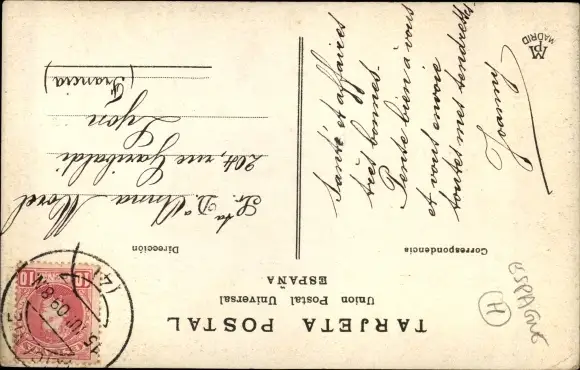 TARJETA POSTAL
Unión Postal Universal
ESPAÑA
Correspondencia
Dirección
Santé et affaires
très bonnes.
Pense bien à vous
et vous envoie
toutes mes tendresses
Joanny
Sr.ta D.a Anna Morel
204, rue Garibaldi
Lyon
(Francia)
MADRID
ESPAGNE
H
10 10